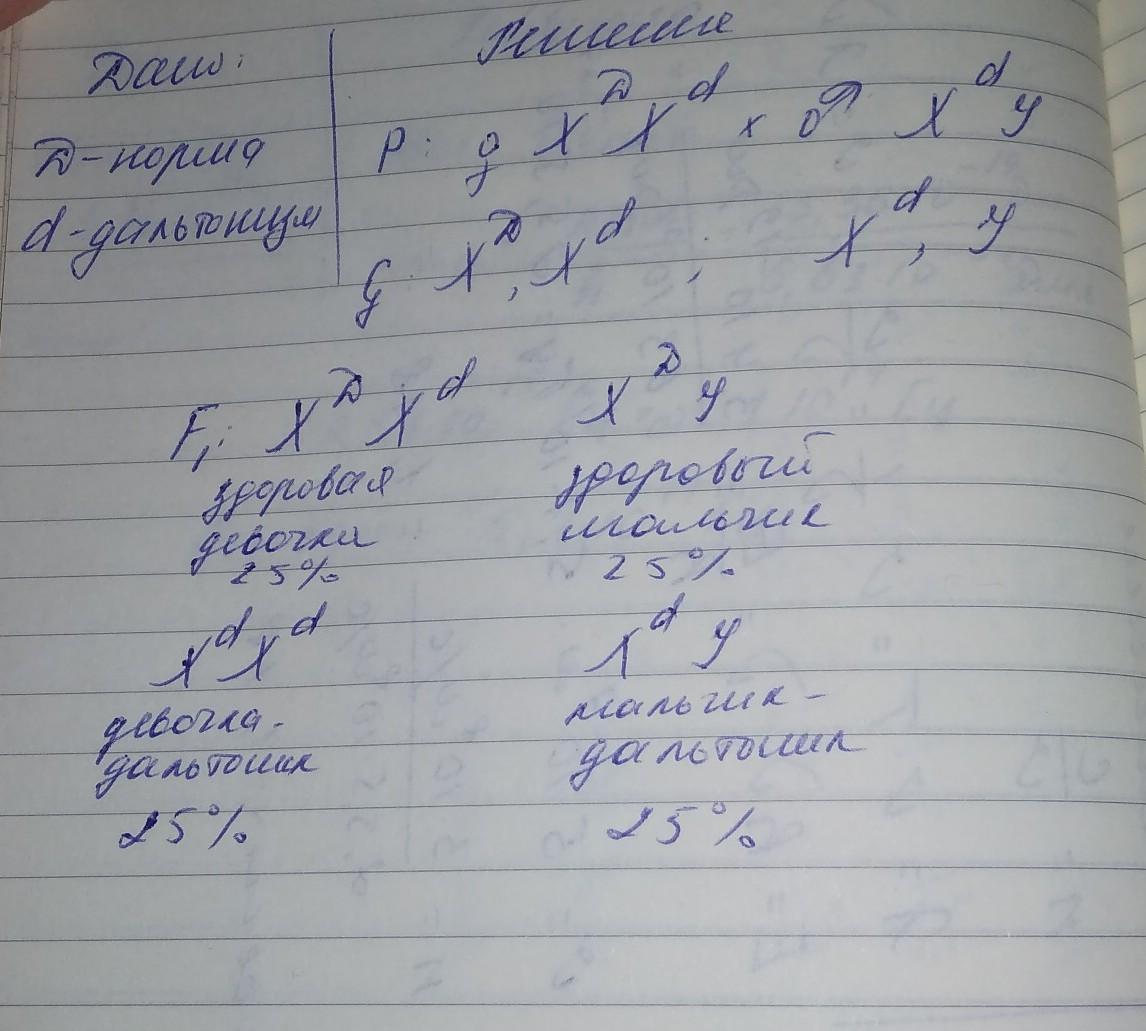 Дано:
Решение
D-норма
P: ♀ X^D X^d × ♂ X^d У
d-дальтонизм
G: X^D, X^d ; X^d, У
F₁: X^D X^d X^D У
здоровая здоровый
девочка мальчик
25% 25%
X^d X^d X^d У
девочка- мальчик-
дальтоник дальтоник
25% 25%